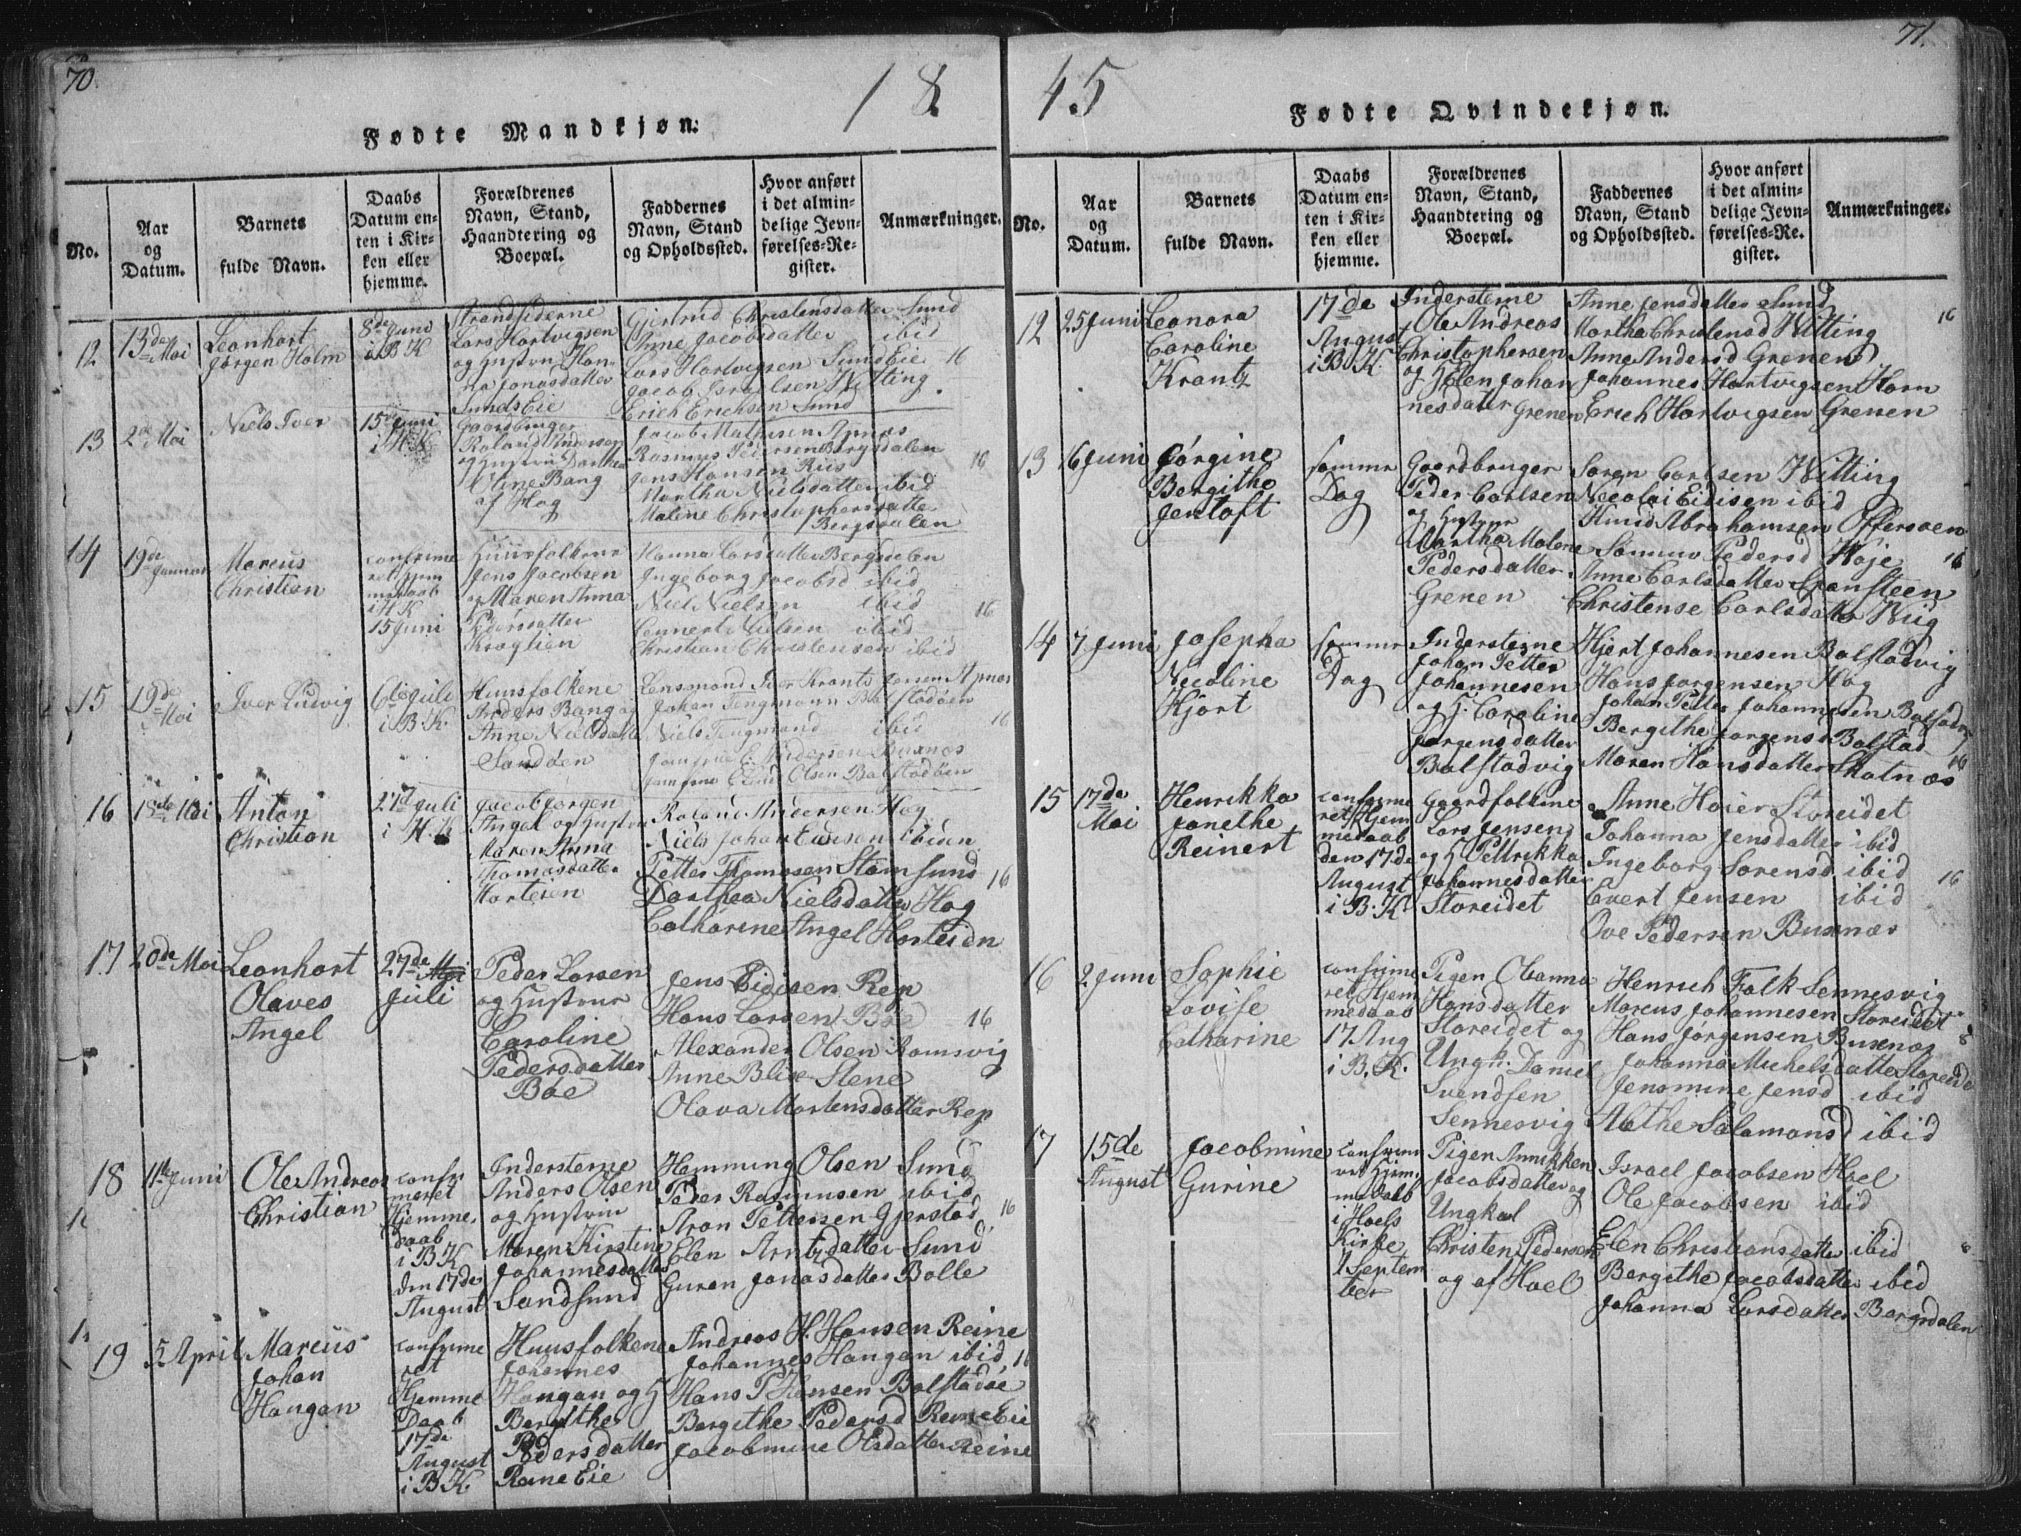 70
18
Fødte Mandkjøn.
No.
Aar
og
Datum.
Barnets
fulde Navn.
Daabs
Datum en-
ten i Kir-
ken eller
hjemme.
Forældrenes
Navn, Stand,
Haandtering og
Boepæl.
Faddernes
Navn, Stand
og Opholdssted.
Hvor anført
i det almin-
delige Jevn-
førelses-Re-
gister.
Anmærkninger.
12
13de
Mai
Leonhart
Jørgen Holm
8de Juni
i B K
Strandsiderne
Lars Hartvigsen
og Hustru Han-
na Jonasdatter
Sunds Eie
Gjertrud Christensdatter Sund
Anne Jacobsdatter ibid
Lars Hartvigsen Sundseie
Jacob Israelsen Witting
Erich Erichsen Sund
16
13
2de Mai
Niels Iver
15de Juni
i H K
Gaardbruger
Roland Andersen
og Hustru Dorthea
Oline Bang
af Hag
Jacob Mathisen Apnæs
Rasmus Pedersen Bergsdalen
Jens Hansen Riis
Martha Nielsdatter ibid
Malene Christophersdatter
Bergsdalen
16
14
19de
Januar
Marcus
Christian
confirme
ret hjem
medaab
i H K
15 Juni
Huusfolkene
Jens Jacobsen
og Maren Anna
Pedersdatter
Kragtien
Hanna Larsdatter Bergsdalen
Ingeborg Jacobsd ibid
Niel Nielsen ibid
Lennert Nielsen ibid
Christian Christensen ibid
16
15
19de
Mai
Iver Ludvig
6te Juli
i B. K.
Huusfolkene
Anders Bang og
Anne Nielsdatter
Sandøen
Lensmand Iver Krantz Jensen Apnæs
Johan Tengmann Balstadøen
Niels Tengmand ibid
Jomfrue E. Pedersen Buxnæs
Jomfrue Edni Olsen Balstadøen
16
16
18de Mai
Anton
Christian
27d Juli
i H. K
Jacob Jørgen
Angel og Hustru
Maren Anna
Thomasdatter
Horteien
Roland Andersen Hag
Niels Johan Eidisen ibiden
Petter Thomasen Stamsund
Dorthea Nielsdatter Hag
Catharine Angel Horteidn
16
17
20de Mai
Leonhart
Olaves
Angel
27de
Juli
Peder Larsen
og Hustrue
Caroline
Pedersdatter
Bøe
Jens Eidisen Rep
Hans Larsen Bøe
Alexander Olsen Ramsvig
Anne Blixe Stene
Olava Mortensdatter Rep
16
18
11te Juni
Ole Andreas
Christian
confir-
meret
Hjemme-
daab
i B K
den 17de
August
Indersterne
Anders Olsen
og Hustru
Maren Kirstine
Johannesdatter
Sandsund
Hemming Olsen Sund
Peder Rasmusen ibid
Aron Pettersen Gjerstad
Elen Arntzdatter Sund
Guren Jonasdatter Bolle
16
19
5 April
Marcus
Johan
Hangan
confirme
ret
Hjemme
Daab
17de
August
i B K.
Huusfolkene
Johannes
Hangan og H
Bergithe
Pedersdatter
Reine Eie
Andreas H. Hansen Reine
Johannes Hangan ibid
Hans P Hansen Balstadøe
Bergithe Pedersd Reine Eie
Jacobmine Olsdatter Reine
16
71.
45
Fødte Qvindekjøn.
No.
Aar
og
Datum.
Barnets
fulde Navn.
Daabs
Datum en-
ten i Kir-
ken eller
hjemme.
Forældrenes
Navn, Stand,
Haandtering og
Boepæl.
Faddernes
Navn, Stand
og Opholdssted.
Hvor anført
i det almin-
delige Jevn-
førelses-Re-
gister.
Anmærkninger.
12
25 Juni
Leonora
Caroline
Krantz
17de
August
i B. K.
Indersterne
Ole Andreas
Christophersen
og H Elen Johan
nesdatter Grenen
Anne Jensdatter Sund
Martha Christensd Witting
Anne Andersd Grenen
Johannes Hartvigsen Horn
Erich Hartvigsen Grenen
16
13
16 Juni
Jørgine
Bergithe
Jentoft
samme
Dag
Gaardbruger
Peder Carlsen
og Hustrue
Martha Malene
Pedersdatter
Grenen
Søren Carlsen Witting
Nicolai Eidisen ibid
Knud Abrahamsen Offersøen
Sømme Pedersd Høje
Anne Carlsdatter Grønsteen
Christense Carlsdatter Wiig
16
14
7 Juni
Josepha
Nicoline
Hjort
samme
Dag
Indersterne
Johan Petter
Johannesen
og H. Caroline
Jørgensdatter
Balstadvig
Hjert Johannesen Balstadvig
Hans Jørgensen Hag
Johan Petter Johannesen Balstadvig
Bergithe Jørgensd Balstad
Maren Hansdatter Skotnæs
16
15
17de
Mai
Henrikka
Janethe
Reinert
confirme
ret Hjem
medaab
den 17de
August
i B. K.
Gaardfolkene
Lars Jensen
og H Pettrikka
Johannesdatter
Storeidet
Anne Høier Storeidet
Johanna Jensdatter ibid
Ingeborg Sørensd ibid
Evert Jensen ibid
Ove Pedersen Buxnæs
16
16
2 Juni
Sophie
Lovise
Catharine
confirme
ret Hjem
medaab
17 Aug
i B. K.
Pigen Abanna
Hansdatter
Storeidet og
Ungk. Daniel
Svendsen
Sennesvig
Henrich Falk Sennesvig
Marcus Johannesen Storeidet
Hans Jørgensen Buxnæs
Johanna Michelsdatter Storeide
Jensmine Jensd ibid
Alethe Salamonsd ibid
8
17
15de
August
Jacobmine
Gurine
confirme
ret Hjem
medaab
i Hoels
Kirke
1 Septem
ber
Pigen Annikken
Jacobsdatter og
Ungkal
Christen Pedersen
og af Hoel
Israel Jacobsen Hoel
Ole Jacobsen ibid
Elen Christiansdatter ibid
Bergithe Jacobsdatter ibid
Johanna Larsdatter Bergsdalen
8